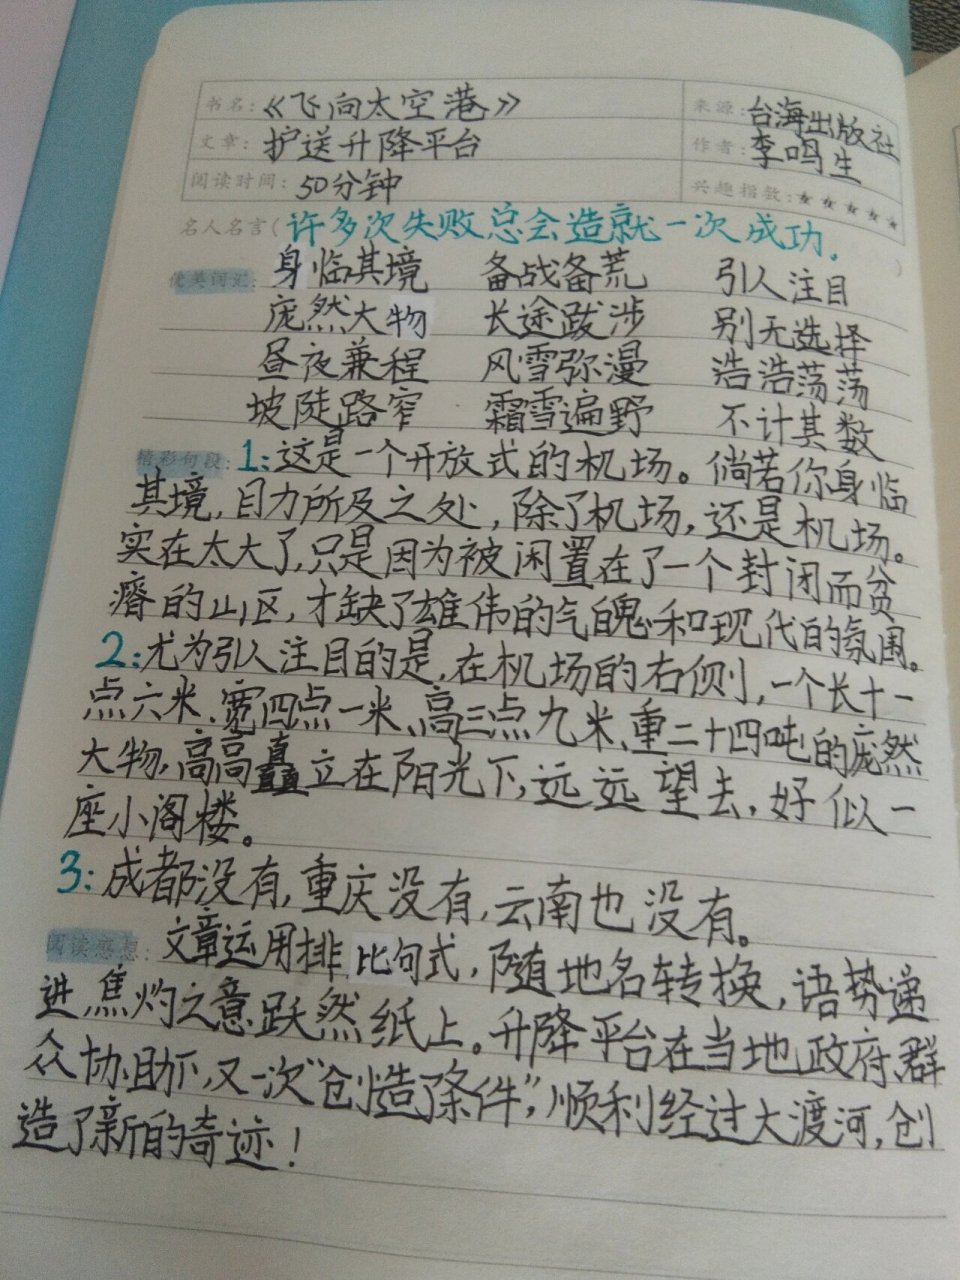 书名：《飞向太空港》 来源：台海出版社
文章：护送升降平台 作者：李鸣生
阅读时间：50分钟 兴趣指数：★★★★★
名人名言（许多次失败总会造就一次成功。）
优美词汇：身临其境 备战备荒 引人注目
庞然大物 长途跋涉 别无选择
昼夜兼程 风雪弥漫 浩浩荡荡
坡陡路窄 霜雪遍野 不计其数
精彩句段：1：这是一个开放式的机场。倘若你身临
其境，目力所及之处，除了机场，还是机场。
实在太大了，只是因为被闲置在了一个封闭而贫
瘠的山区，才缺了雄伟的气魄和现代的氛围。
2：尤为引人注目的是，在机场的右侧，一个长十一
点六米、宽四点一米、高三点九米、重二十四吨的庞然
大物，高高矗立在阳光下，远远望去，好似一
座小阁楼。
3：成都没有，重庆没有，云南也没有。
阅读感悟：文章运用排比句式，随地名转换，语势递
进，焦灼之意跃然纸上。升降平台在当地政府、群
众协助下，又一次“创造了条件”，顺利经过大渡河，创
造了新的奇迹！